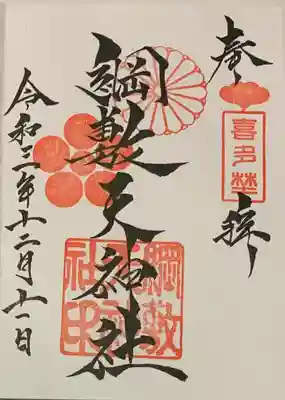 奉拝
喜多埜
綱敷天神社
綱敷天神社印
令和二年十二月十一日